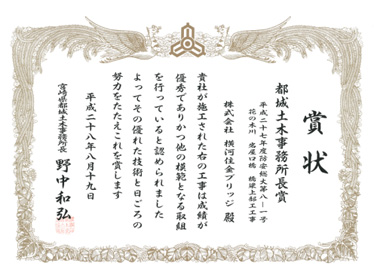 賞状
都城土木事務所長賞
平成二十七年度防安総大第八ー一号
花の木川 鬼屋口橋 橋梁上部工工事
株式会社 横河住金ブリッジ 殿
貴社が施工された右の工事は成績が
優秀でありかつ他の模範となる取組
を行っていると認められました
よってその優れた技術と日ごろの
努力をたたえこれを賞します
平成二十八年八月十九日
宮崎県都城土木事務所長 野中和弘